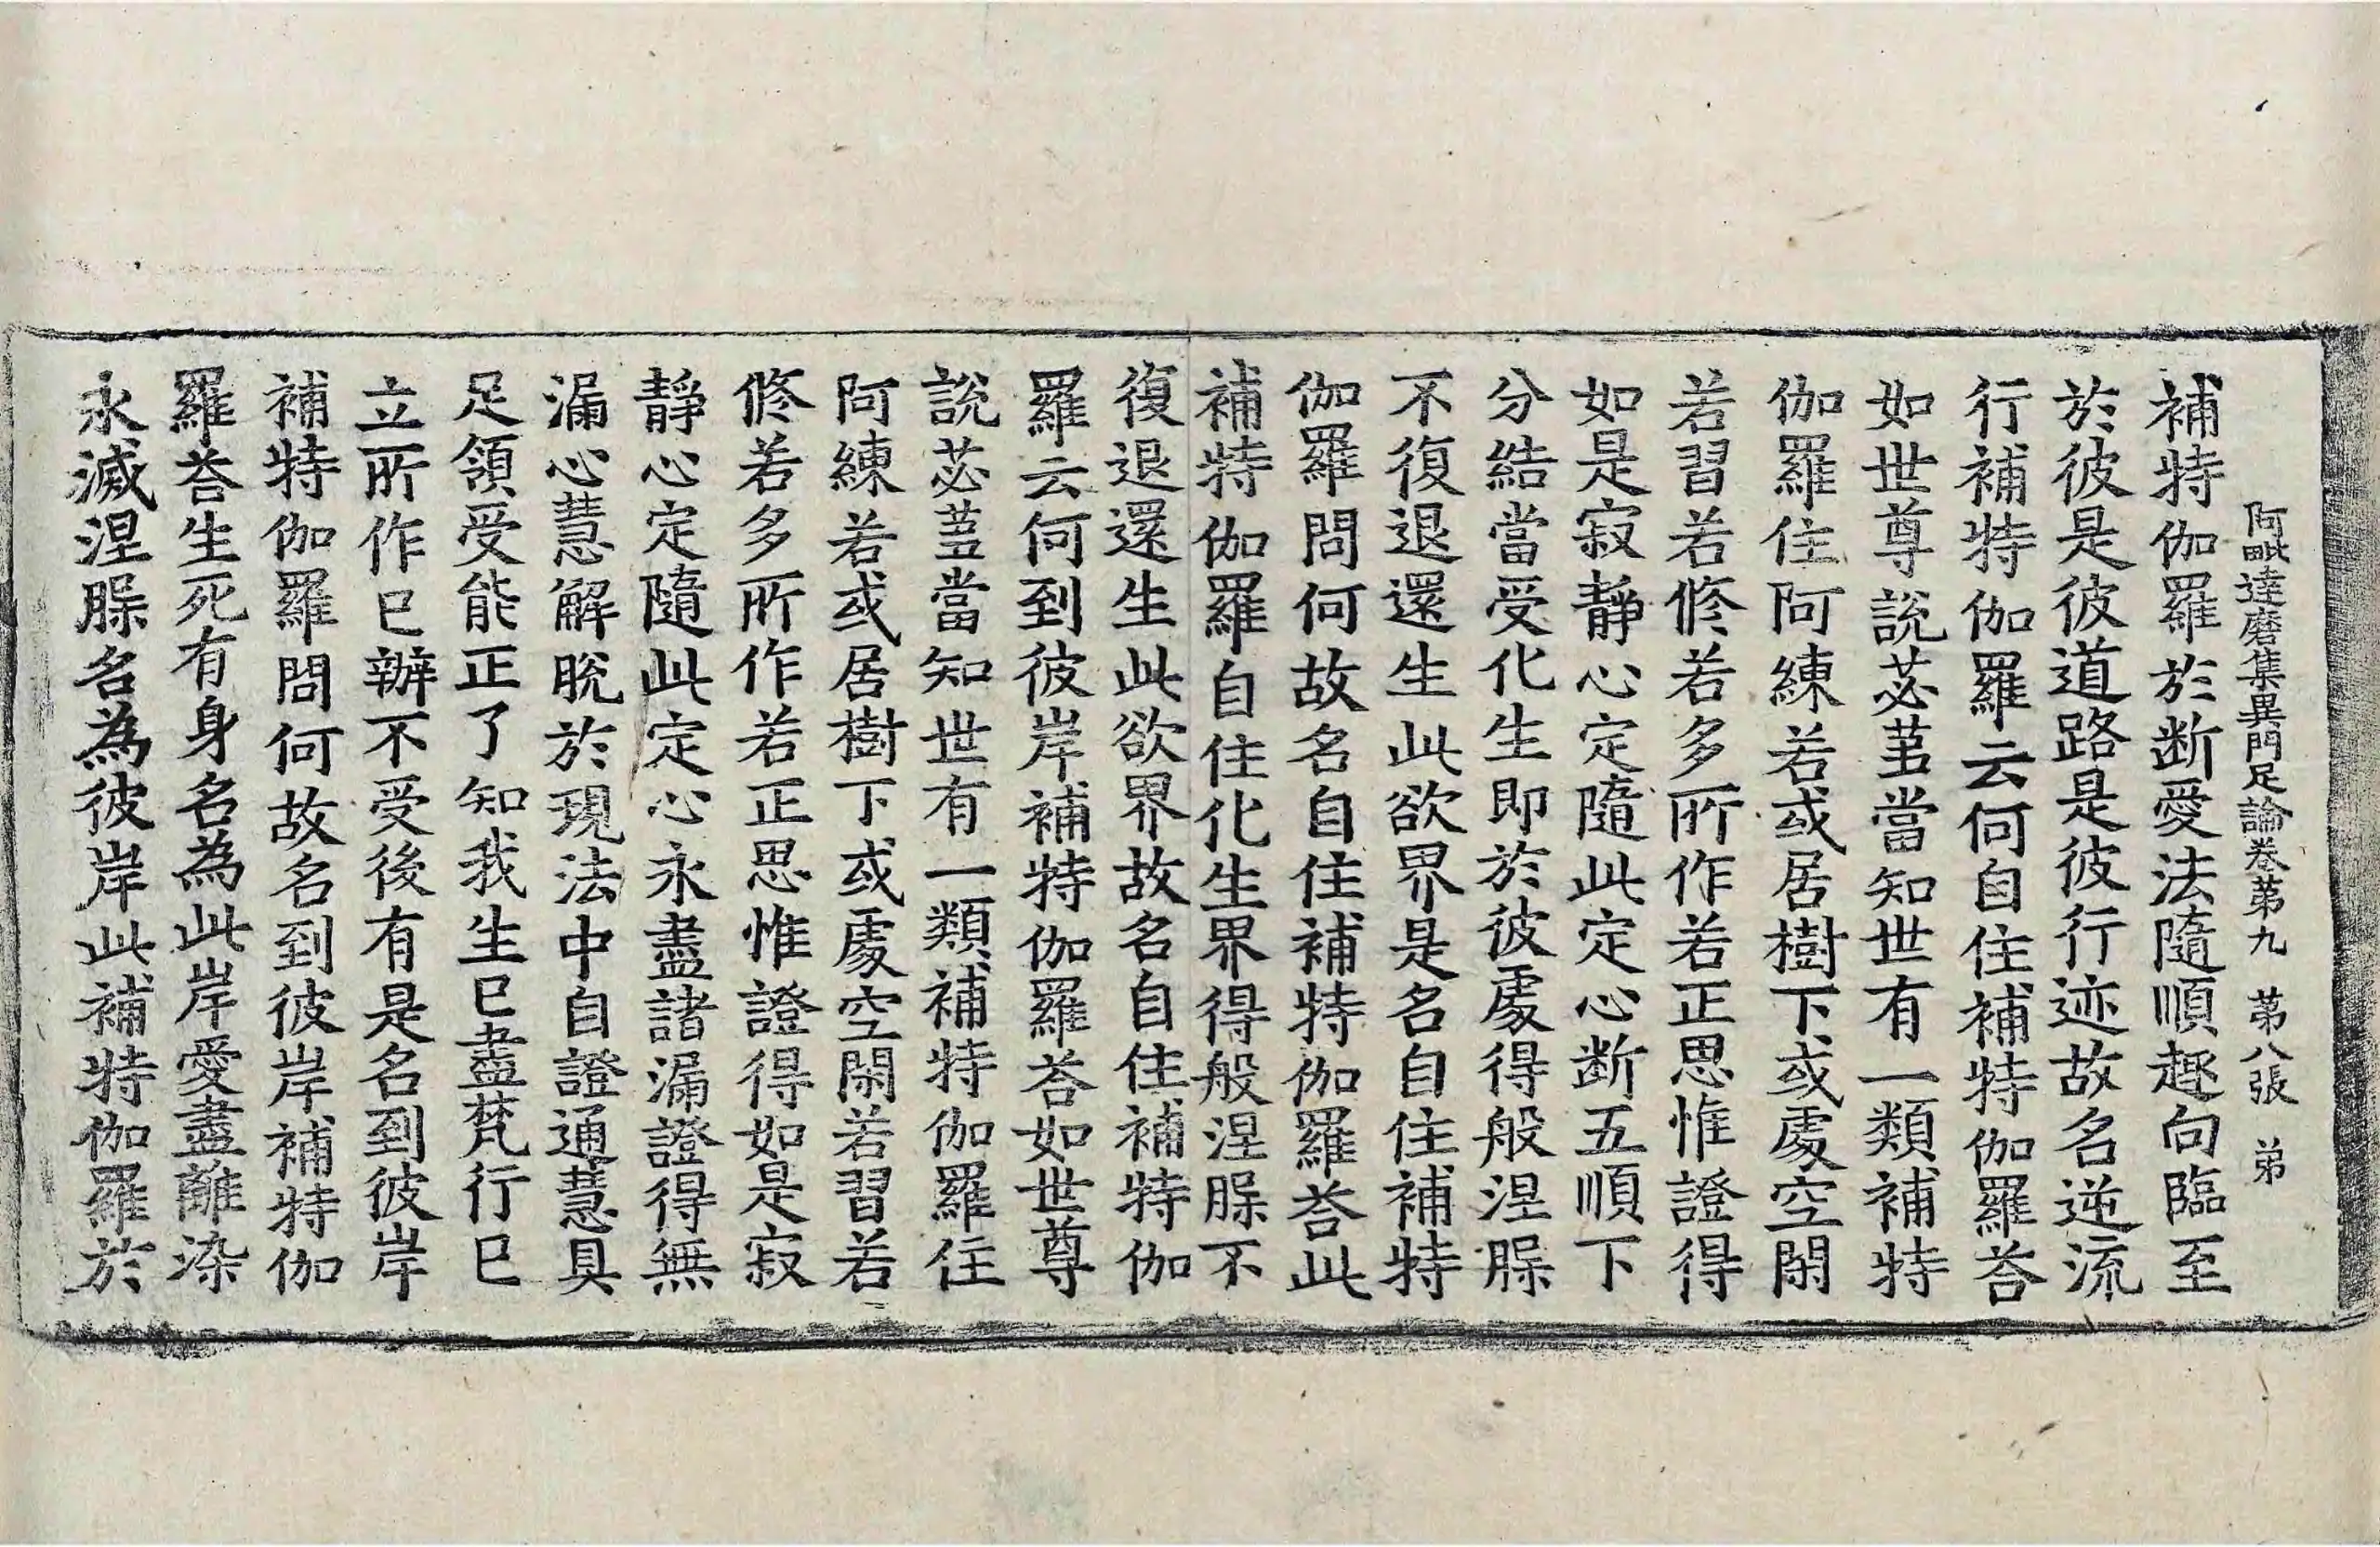 阿毗達磨集異門足論卷苐九　苐八張　弟
補特伽羅於断愛法隨順趣向臨至
於彼是彼道路是彼行迹故名逆流
行補特伽羅云何自住補特伽羅荅
如世尊說苾蒭當知世有一類補特
伽羅住阿練若或居樹下或處空閑
若習若修若多所作若正思惟證得
如是寂靜心定隨此定心断五順下
分結當受化生即於彼處得般涅縣
不復退還生此欲界是名自住補特
伽羅問何故名自住補特伽羅荅此
補特伽羅自住化生界得般涅縣不
復退還生此欲界故名自住補特伽
羅云何到彼岸補特伽羅荅如世尊
說苾蒭當知世有一類補特伽羅住
阿練若或居樹下或處空閑若習若
修若多所作若正思惟證得如是寂
靜心定隨此定心永盡諸漏證得無
漏心慧解脫於現法中自證通慧具
足領受能正了知我生已盡梵行已
立所作已辦不受後有是名到彼岸
補特伽羅問何故名到彼岸補特伽
羅荅生死有身名為此岸愛盡離染
永滅涅縣名為彼岸此補特伽羅於